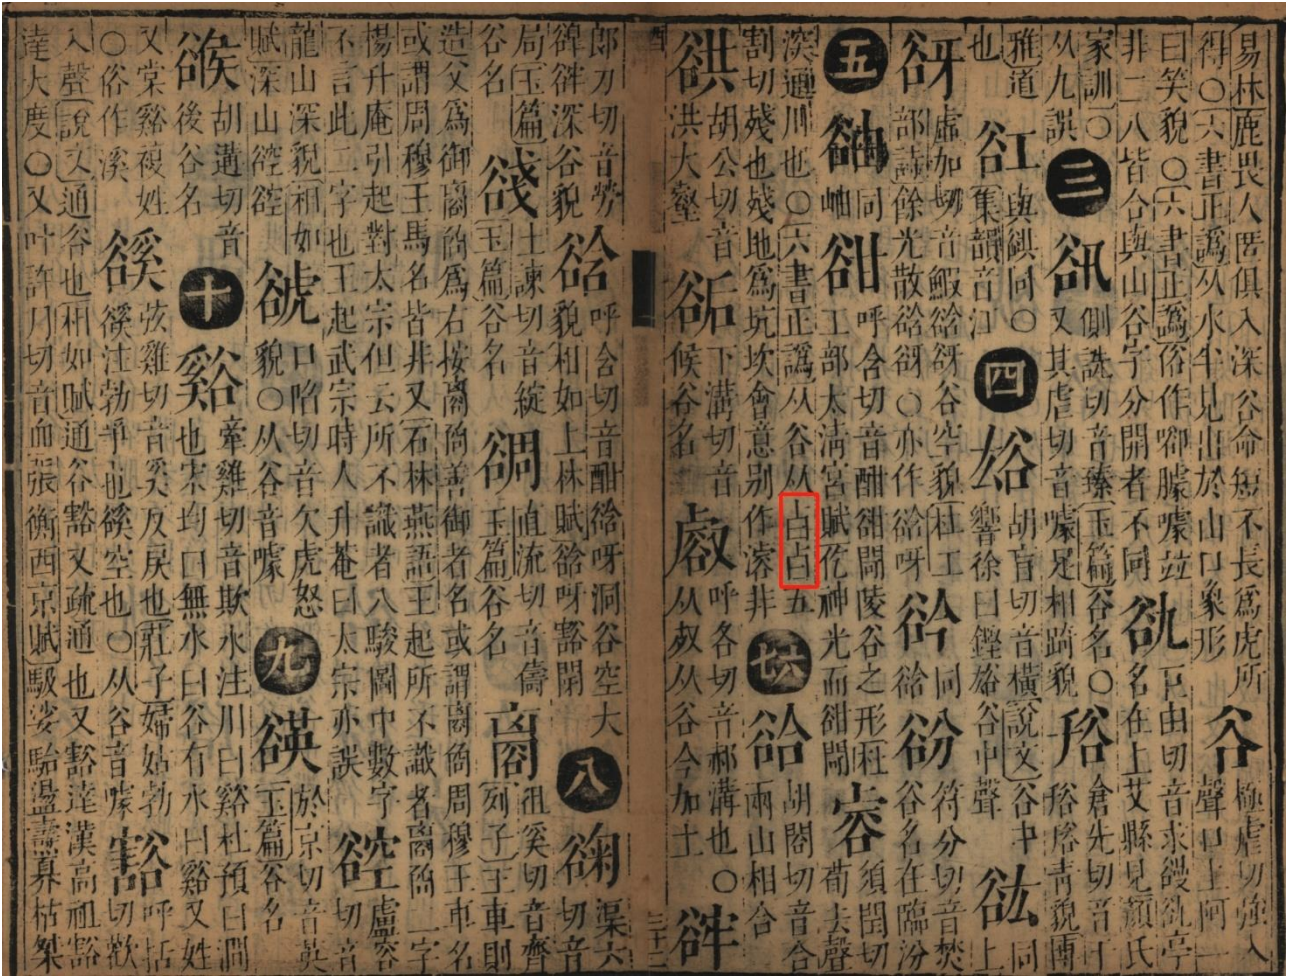 易林鹿畏人匿俱入深谷命短不長爲虎所
得○六書正譌从水半見出於山口象形
谷
極虐切強入
聲口上阿一
曰笑貌○六書正譌俗作啣臄噱𠀤
非二八皆合與山谷字分開者不同
切音求亭
名在上艾縣見顏氏
家訓○
从九誤
三
側詵切音臻玉篇谷名○
又其虐切音噱足相踦貌
谸
倉先切音千
谸谸青貌
雅道
也
與谼同○
集韻音江
四
胡盲切音橫說文谷中
響徐曰鏗谷中聲
谹
同
上
谺
虛加切音鰕谽谺谷空貌杜工
部詩餘光散谽谺○亦作谽呀
同
谽
符分切音焚
谷名在臨汾
五
同
岫
呼含切音酣閜陵谷之形杜
工部太淸宮賦仡神光而閜
容
須閏切
荀去聲
深通川也○六書正譌从谷从白占五
割切殘也殘地爲坑坎會意别作濬非
六七
胡閤切音合
兩山相合
谼
胡公切音
洪大壑
下溝切音
候谷名
㕡
呼各切音郝溝也○
从𣦼从谷今加土
三十二
郎刀切音勞
深谷貌
谽
呼含切音酣谽呀洞谷空大
貌相如上林賦谽呀豁閜
八
渠六
切音
局玉篇
谷名
士諫切音綻
玉篇谷名
直流切音儔
玉篇谷名
祖奚切音齊
列子王車則
造父爲御爲右按善御者名或謂周穆王車名
或謂周穆王馬名皆非又石林燕語王起所不識者二字
揚升庵引起對太宗但云所不識者八駿圖中數字
不言此二字也王起武宗時人升菴曰太宗亦誤
谾
盧容
切音
龍山深貌相如
賦深山谾谾
口切音欠虎怒
貌○从谷音噱
九
於京切音英
玉篇谷名
胡遘切音
後谷名
十
谿
牽雞切音欺水注川曰谿杜預曰澗
也宋均曰無水曰谷有水曰谿又姓
又棠谿複姓
○俗作溪
豀
弦雞切音奚反戾也莊子婦姑勃
豀注勃爭也豀空也○从谷音噱
豁
呼括
切歡
入聲說文通谷也相如賦通谷豁又疏通也又豁達漢高祖豁
達大度○又叶許月切音血張衡西京賦馺娑駘盪燾奡枯桀